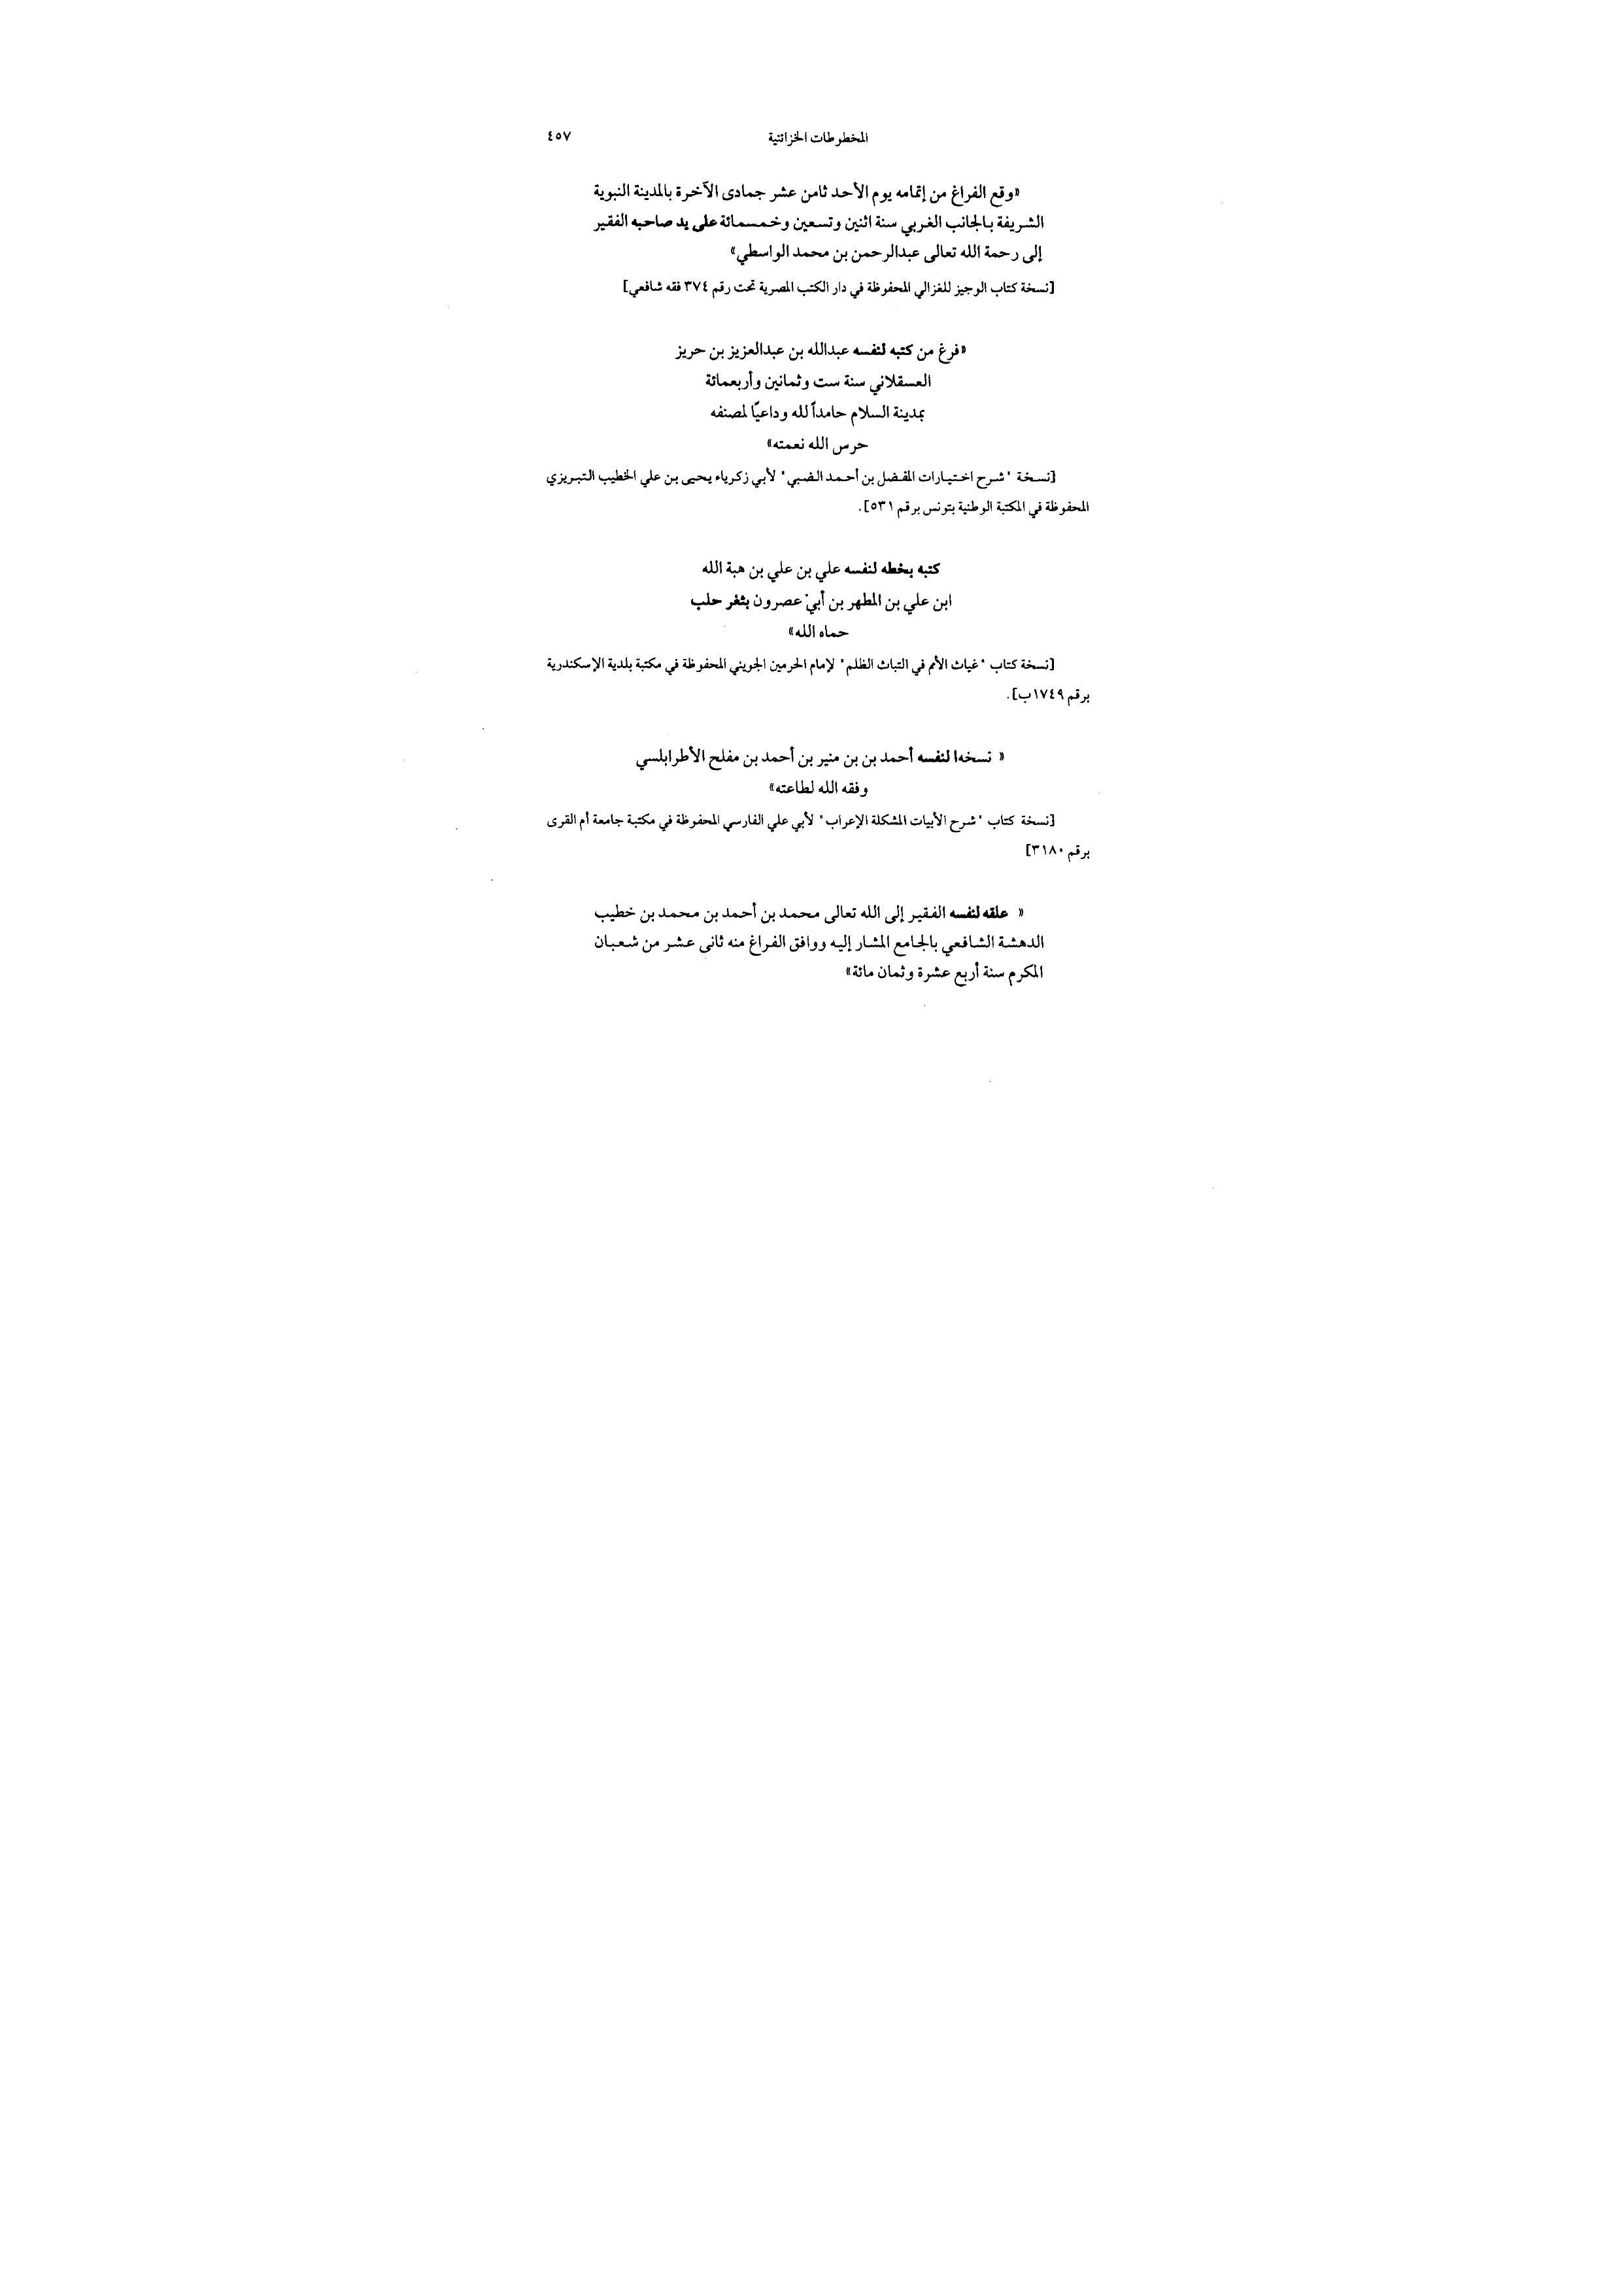 المخطوطات الخزائنية ٤٥٧
«وقع الفراغ من إتمامه يوم الأحد ثامن عشر جمادى الآخرة بالمدينة النبوية
الشريفة بالجانب الغربي سنة اثنين وتسعين وخمسمائة على يد صاحبه الفقير
إلى رحمة الله تعالى عبدالرحمن بن محمد الواسطي»
[نسخة كتاب الوجيز للغزالي المحفوظة في دار الكتب المصرية تحت رقم ٣٧٤ فقه شافعي]
«فرغ من كتبه لنفسه عبدالله بن عبدالعزيز بن حريز
العسقلاني سنة ست وثمانين وأربعمائة
بمدينة السلام حامداً لله وداعيًا لمصنفه
حرس الله نعمته»
[نسخة "شرح اختيارات المفضل بن أحمد الضبي" لأبي زكرياء يحيى بن علي الخطيب التبريزي
المحفوظة في المكتبة الوطنية بتونس برقم ٥٣١].
كتبه بخطه لنفسه علي بن علي بن هبة الله
ابن علي بن المطهر بن أبي عصرون بثغر حلب
حماه الله»
[نسخة كتاب "غياث الأمم في التباث الظلم" لإمام الحرمين الجويني المحفوظة في مكتبة بلدية الإسكندرية
برقم ١٧٤٩ب].
« نسخه لنفسه أحمد بن بن منير بن أحمد بن مفلح الأطرابلسي
وفقه الله لطاعته»
[نسخة كتاب "شرح الأبيات المشكلة الإعراب" لأبي علي الفارسي المحفوظة في مكتبة جامعة أم القرى
برقم ٣١٨٠]
« علقه لنفسه الفقير إلى الله تعالى محمد بن أحمد بن محمد بن خطيب
الدهشة الشافعي بالجامع المشار إليه ووافق الفراغ منه ثانى عشر من شعبان
المكرم سنة أربع عشرة وثمان مائة»